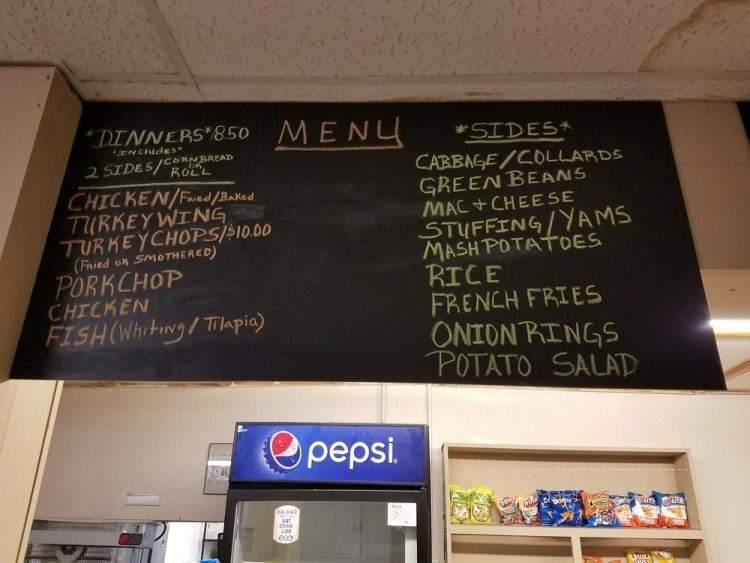 MENU
*DINNERS* 8.50
*INCLUDES*
2 SIDES/CORNBREAD OR ROLL
CHICKEN/Fried/Baked
TURKEY WING
TURKEY CHOPS/$10.00
(Fried or Smothered)
PORKCHOP
CHICKEN
FISH (Whiting/Tilapia)
*SIDES*
CABBAGE/COLLARDS
GREEN BEANS
MAC + CHEESE
STUFFING/YAMS
MASH POTATOES
RICE
FRENCH FRIES
ONION RINGS
POTATO SALAD
pepsi